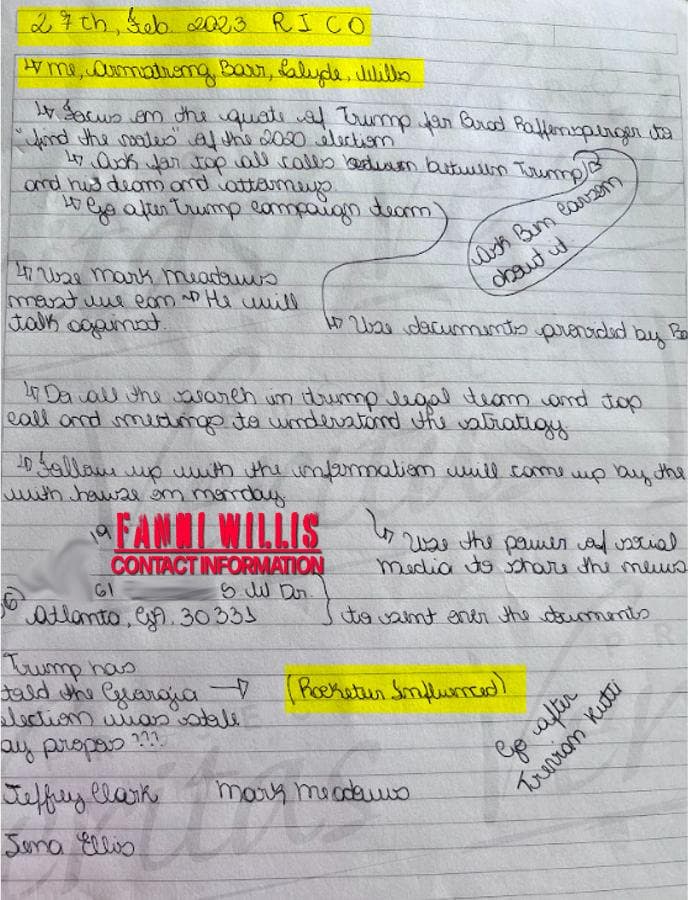 27th, Feb. 2023 R I C O
↳ me, Armstrong, Barr, Clyde, Mills
↳ Focus on the quote of Trump for Brad Raffensperger to
"find the votes" of the 2020 election
↳ Ask for top all calls between Trump
and his team and attorneys
Ask Ben
about it
↳ Go after Trump campaign team
↳ Use Mark Meadows
most we can → He will
talk against.
↳ Use documents provided by Ba
↳ Do all the search in trump legal team and top
call and meetings to understand the stratigy
↳ Follow up with the information will come up by the
with house on monday
↳ Use the power of social
media to share the news
19
FANNI WILLIS
CONTACT INFORMATION
61 S W Dr.
Atlanta, GA. 30331
to sent over the douments
Trump has
told the Georgia →
election was stole
ay propos ???
(Rocketur Influenced)
Go after
Trevian Kutti
Jeffrey Clark Mark Meadows
Jena Ellis